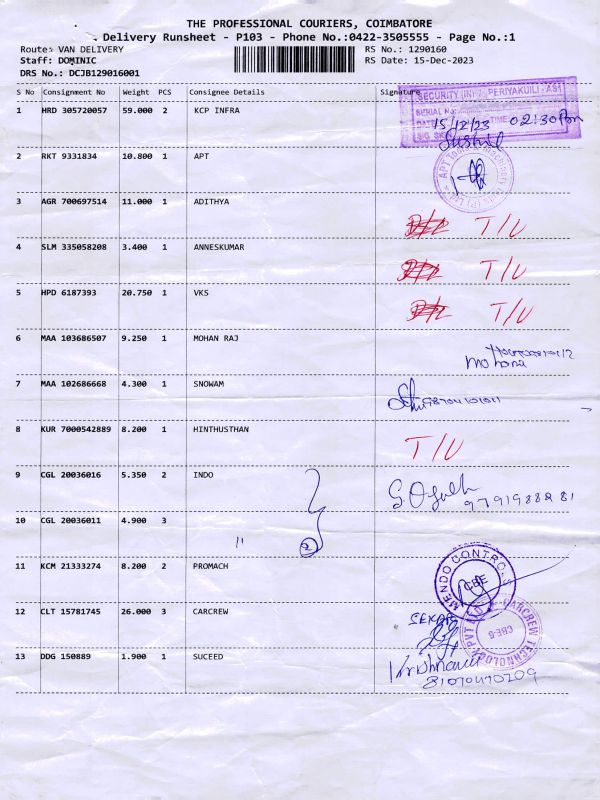 THE PROFESSIONAL COURIERS, COIMBATORE
Delivery Runsheet - P103 - Phone No.:0422-3505555 - Page No.:1
Route: VAN DELIVERY RS No.: 1290160
Staff: DOMINIC RS Date: 15-Dec-2023
DRS No.: DCJB129016001
S No Consignment No Weight PCS Consignee Details Signature
SECURITY PERIYAKUILI
1 HRD 305720057 59.000 2 KCP INFRA
15/12/23 02:30Pm
Sushil
2 RKT 9331834 10.800 1 APT
3 AGR 700697514 11.000 1 ADITHYA
T/U
4 SLM 335058208 3.400 1 ANNESKUMAR
T/U
5 HPD 6187393 20.750 1 VKS
T/U
6 MAA 103686507 9.250 1 MOHAN RAJ
mohana
7 MAA 102686668 4.300 1 SNOWAM
8 KUR 7000542889 8.200 1 HINTHUSTHAN
T/U
9 CGL 20036016 5.350 2 INDO
10 CGL 20036011 4.900 3
11
2
11 KCM 21333274 8.200 2 PROMACH
MENDO CONTROLS
CBE
12 CLT 15781745 26.000 3 CARCREW
SEKAR
CARCREW TECHNOLOGY PVT
CBE6
13 DDG 150889 1.900 1 SUCEED
81070470209